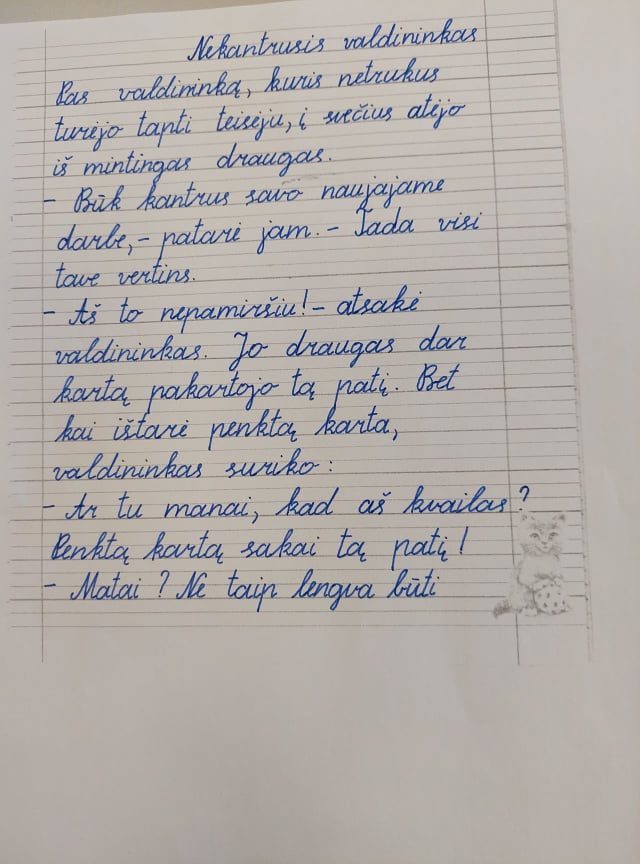 Nekantrusis valdininkas
Pas valdininką, kuris netrukus
turėjo tapti teisėju, į svečius atėjo
išmintingas draugas.
- Būk kantrus savo naujajame
darbe, - patarė jam. - Tada visi
tave vertins.
- Aš to nepamiršiu! - atsakė
valdininkas. Jo draugas dar
kartą pakartojo tą patį. Bet
kai ištarė penktą karta,
valdininkas suriko:
- Ar tu manai, kad aš kvailas?
Penktą kartą sakai tą patį!
- Matai? Ne taip lengva būti